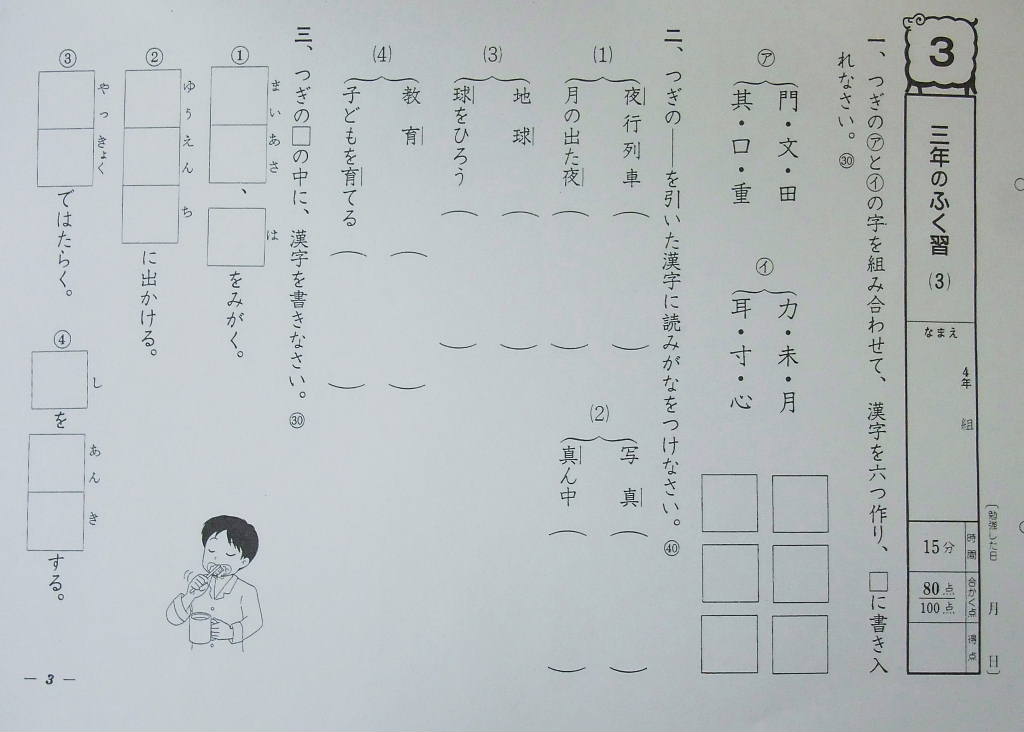 3
三年のふく習
(3)
なまえ
4年 組
時間
15分
合かく点
80点
100点
得点
〔勉強した日 月 日〕
一、つぎの㋐と㋑の字を組み合わせて、漢字を六つ作り、□に書き入
れなさい。㉚
㋐
門・文・田
其・口・重
㋑
力・未・月
耳・寸・心
二、つぎの――を引いた漢字に読みがなをつけなさい。㊵
(1)
夜行列車( )
月の出た夜( )
(2)
写真( )
真ん中( )
(3)
地球( )
球をひろう( )
(4)
教育( )
子どもを育てる( )
三、つぎの□の中に、漢字を書きなさい。㉚
①
まいあさ
、
は
をみがく。
②
ゆうえんち
に出かける。
③
やっきょく
ではたらく。
④
し
を
あんき
する。
— 3 —